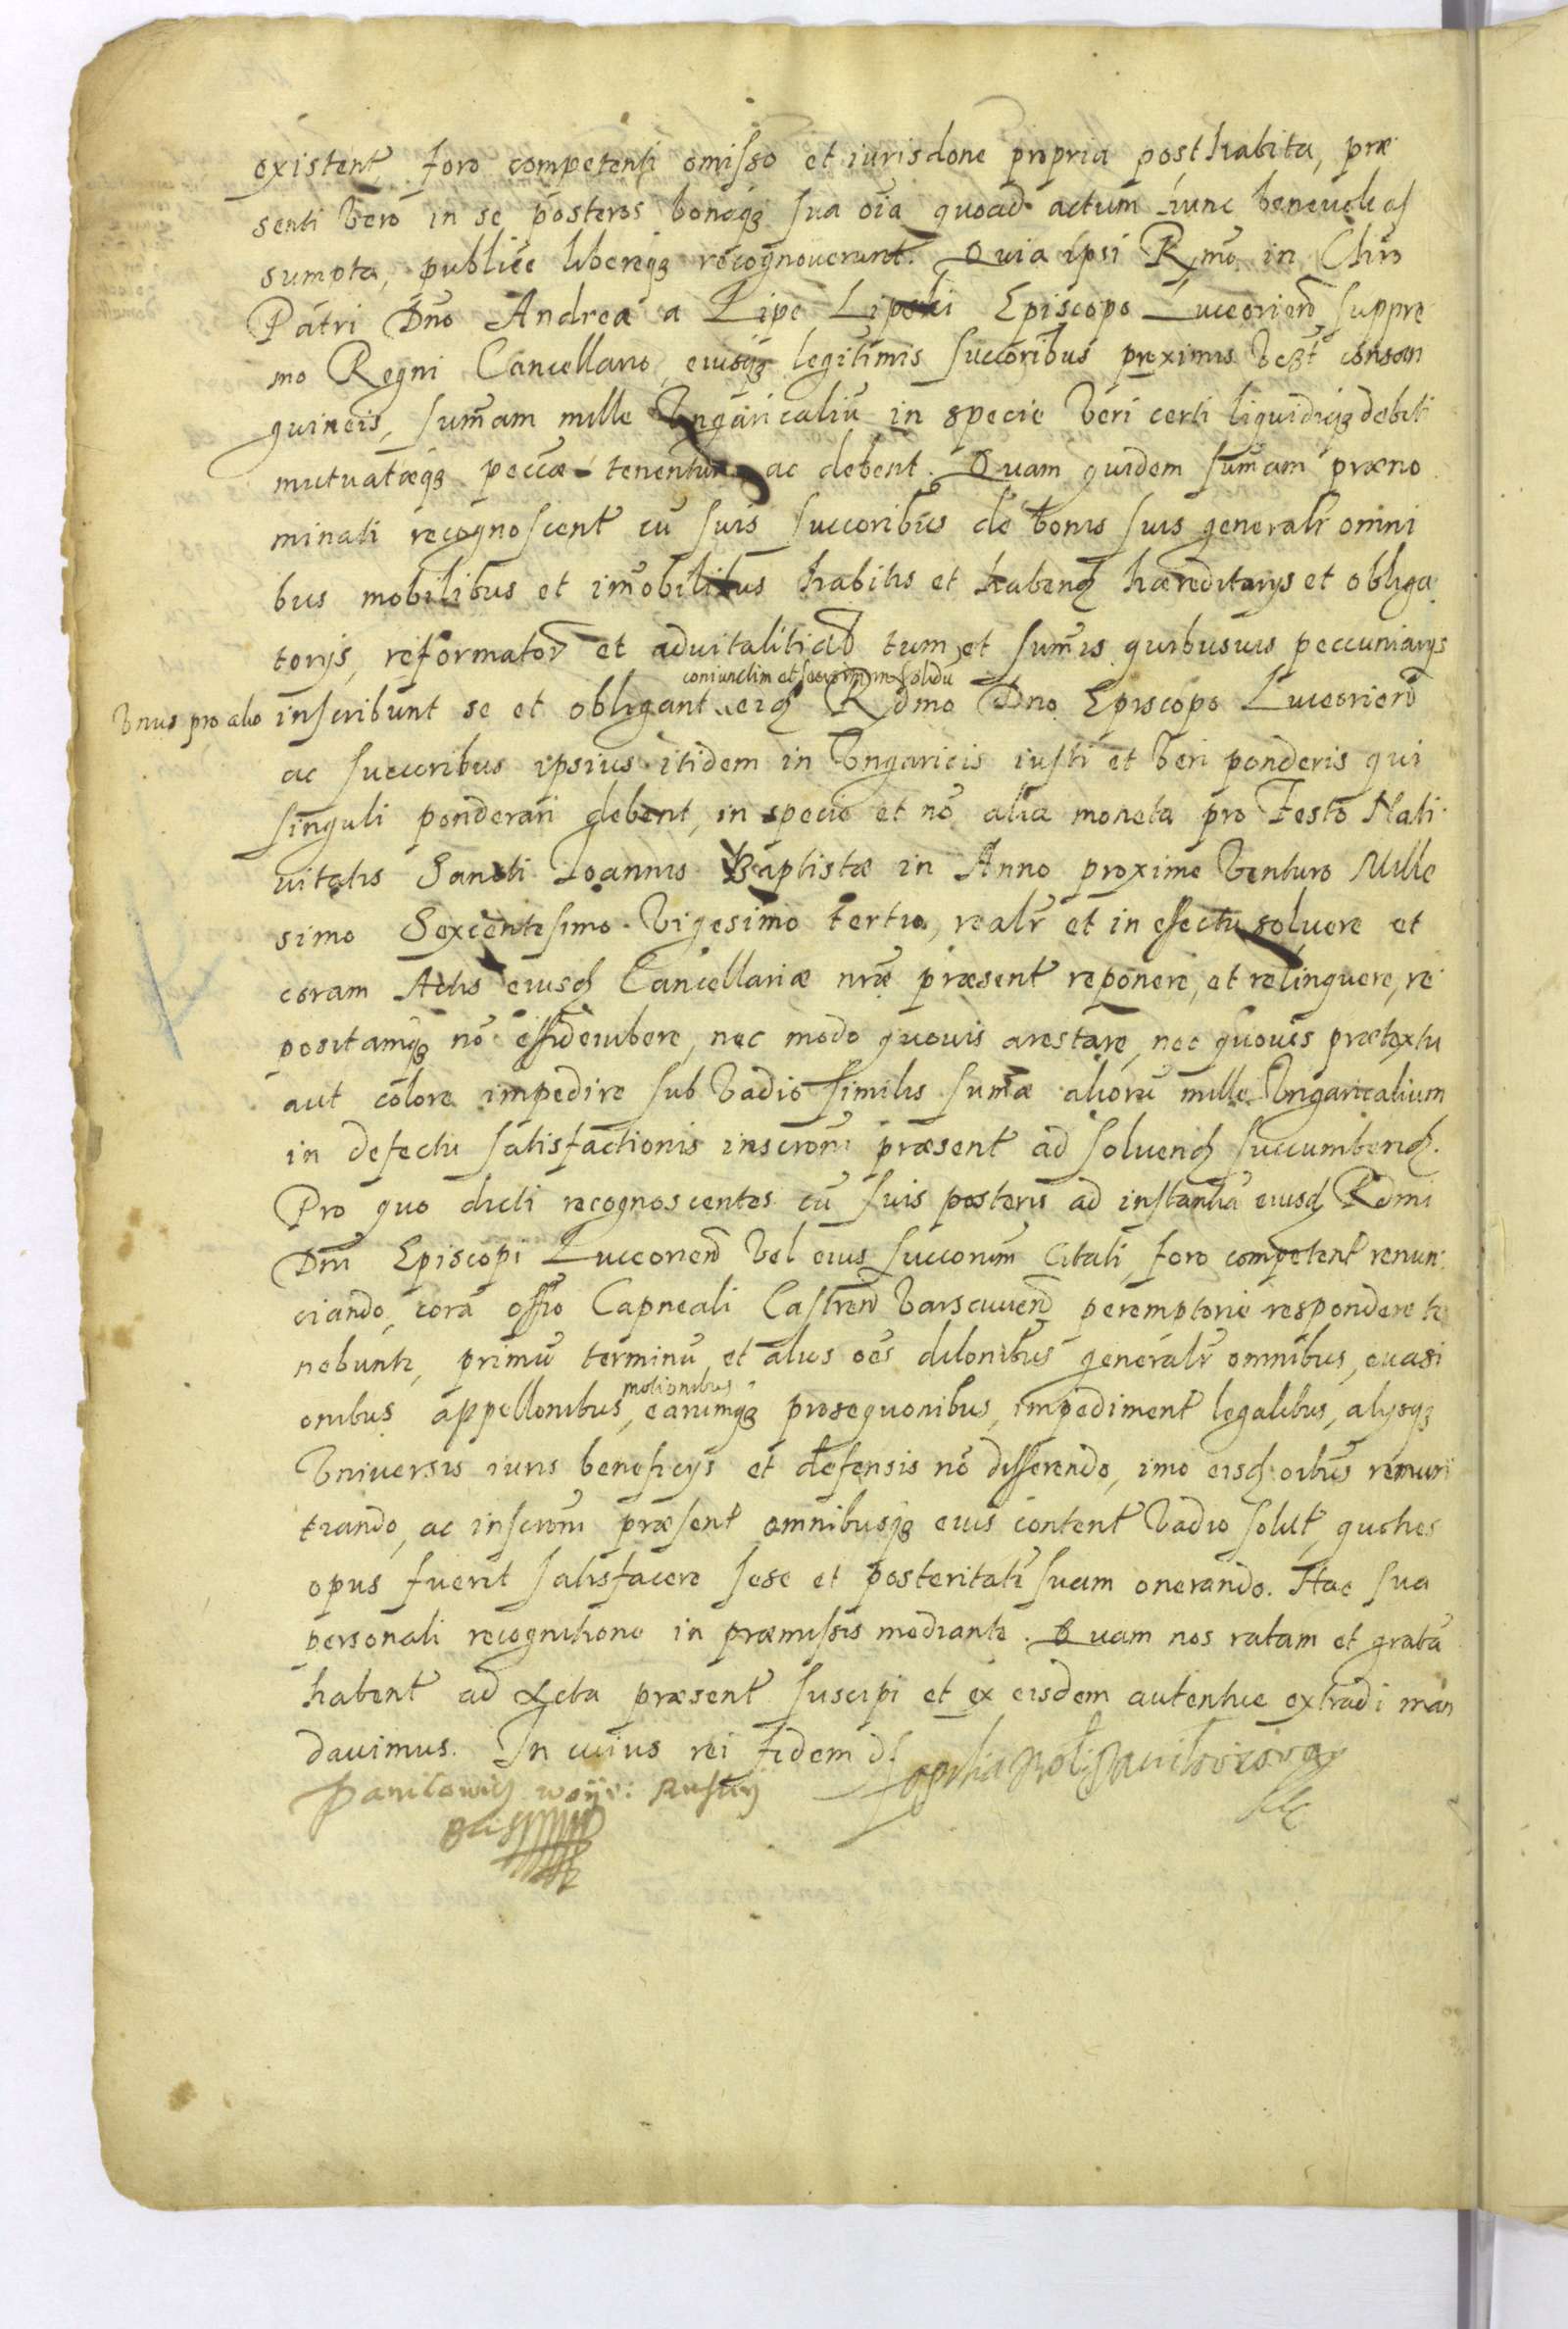 existent foro competenti omisso et iurisdone propria posthabita, præ
senti vero in se posteros bonaqꝫ sua oīa quoad actum hunc beneuole as
sumpta, publice libereqꝫ recognouerunt. Quia ipsi Rmō in Chrō
Patri Dno Andreæ a Lipe Lipski Episcopo Luceorien̄ suppre
mo Regni Cancellario, eiusqꝫ legitimis succoribus proximis consan
guineis, sum̄am mille Vngaricaliū in specie veri certi liquidiqꝫ debiti
mutuatæqꝫ peccæ tenentur ac debent. Quam quidem sum̄am præno
minati recognoscent cū suis succoribus de bonis suis generalr omni
bus mobilibus et im̄obilibus habitis et habend hæreditarys et obliga
torys, reformator et aduitalitiar tum et sum̄is quibusuis peccuniarys
coniunctim et seorsim in solidū
Vnus pro alio inscribunt se et obligant eid Rdmo Dno Episcopo Luceorien̄
ac succoribus ipsius itidem in Vngaricis iusti et veri ponderis qui
singuli ponderari debent, in specie et nō alia moneta pro Festo Nati
uitatis Sancti Ioannis Baptistæ in Anno proxime venturo Mille
simo Sexcentesimo Vigesimo tertio, realr et in effectu soluere et
coram Actis eiusd Cancellariæ nræ præsent reponere, et relinquere, re
positamqꝫ nō nec modo quouis arestare, nec quouis prætextu
aut colore impedire sub vadio similis sum̄æ aliorū mille Vngaricalium
in defectu satisfactionis inscroni præsent ad soluend succumbend.
Pro quo dicti recognoscentes cū suis posteris ad instantiā eiusd Rdmi
Dni Episcopi Luceorien̄ vel eius succorum citati, foro competent renun
ciando, corā offo Capneali Castren̄ Varsauien̄ peremptorie respondere te
nebuntr, primū terminū, et alios oēs dilonibus generalr omnibus, euasi
motionibus
onibus appellonibus, earumqꝫ prosequonibus, impediment legalibus, alysqꝫ
Vniuersis iuris beneficys et defensis nō differendo, imo eisd oibus renun
tiando, ac inscroni præsent omnibusqꝫ eius content vadio solut, quoties
opus fuerit satisfacere sese et posteritatē suam onerando. Hac sua
personali recognitione in præmissis mediante. Quam nos ratam et gratā
habent ad Acta præsent suscipi et ex eisdem autentice extradi man
dauimus. In cuius rei fidem
Danilowicz woye: Rusky